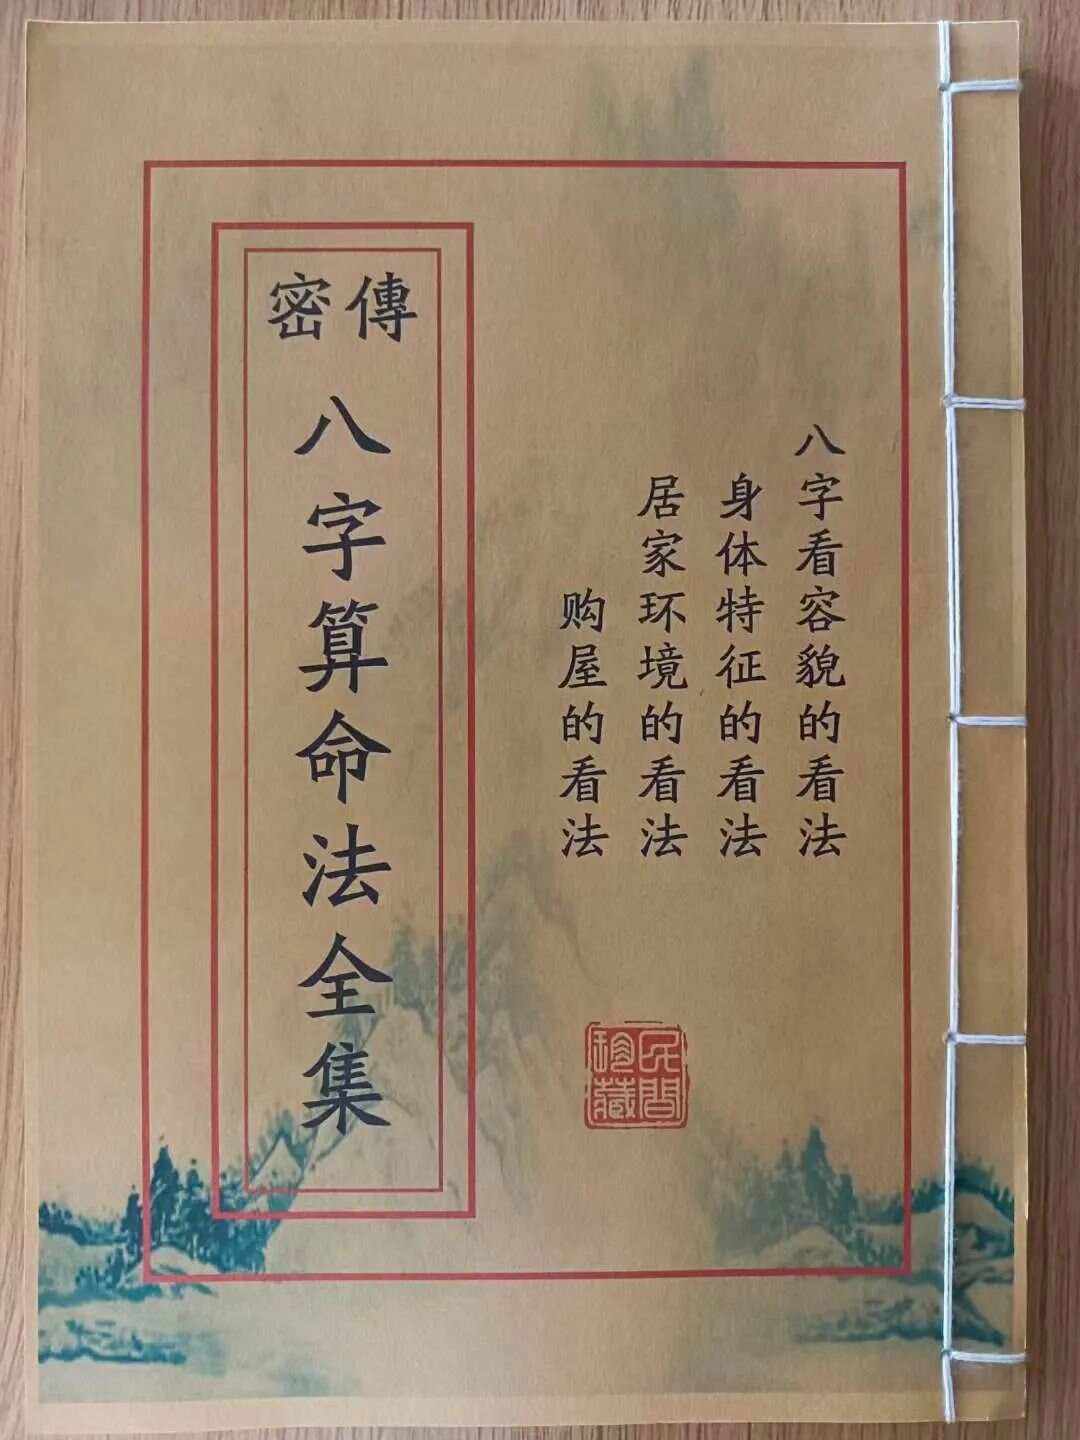 密傳
八字算命法全集
八字看容貌的看法
身体特征的看法
居家环境的看法
购屋的看法
民間珍藏